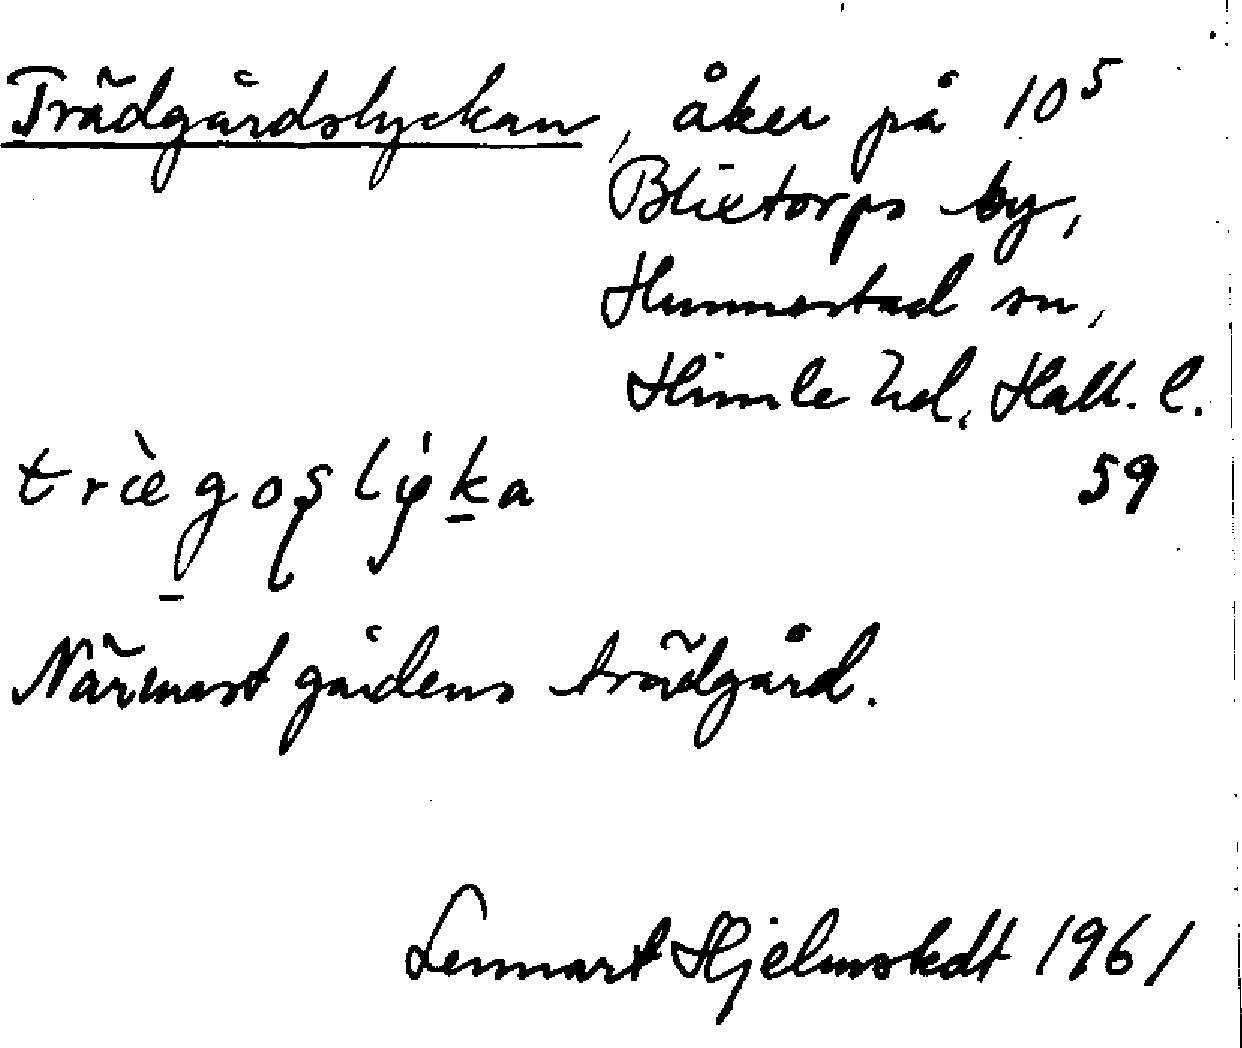 Trädgårdslyckan, åker på 10⁵
Blixtorps by,
Hunnestad sn,
Himle hd, Hall. l.
59
Närmast gårdens trädgård.
Lennart Hjelmstedt 1961